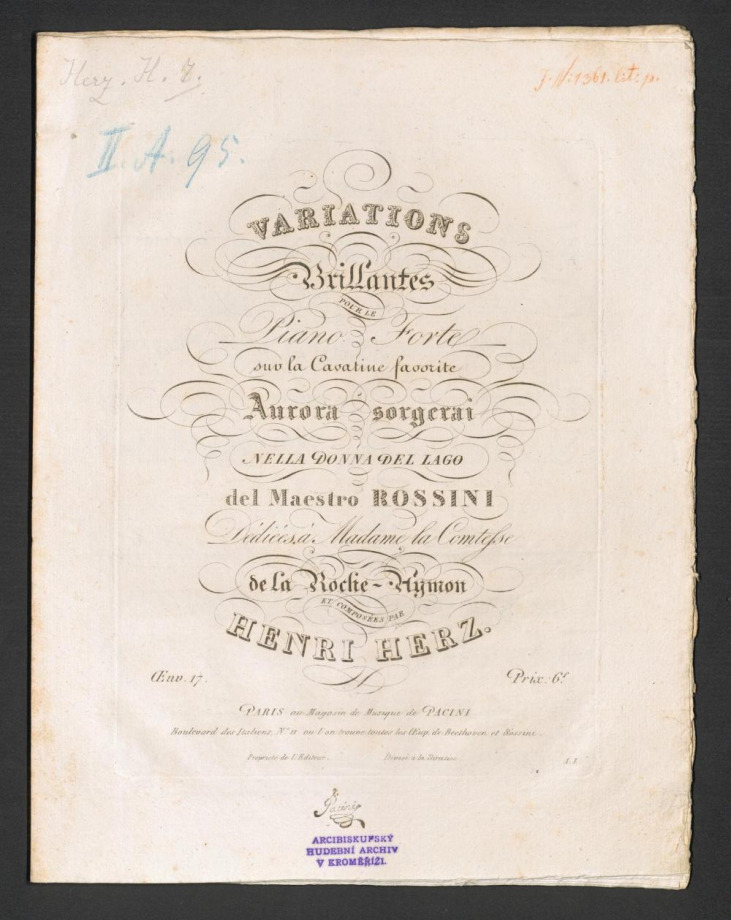 Herz. H. 7.
J. N: 1361. lit: p.
II. A. 95.
VARIATIONS
Brillantes
POUR LE
Piano Forte
sur la Cavatine favorite
Aurora sorgerai
NELLA DONNA DEL LAGO
del Maestro ROSSINI
Dédiées à Madame la Comtesse
de la Roche-Aymon
ET COMPOSÉES PAR
HENRI HERZ.
Œuv. 17. Prix. 6f
PARIS au Magasin de Musique de PACINI
Boulevard des Italiens, No. 11 ou l'on trouve toutes les Œuv. de Beethoven et Rossini.
Propriété de l'Editeur. Déposé à la Direction.
Pacini
ARCIBISKUPSKÝ
HUDEBNÍ ARCHIV
V KROMĚŘÍŽI.